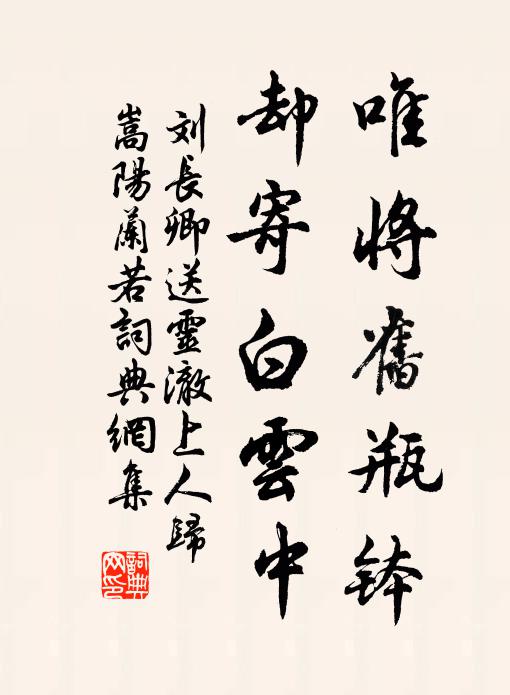 唯將舊瓶鉢
却寄白雲中
刘長卿送靈澈上人歸
嵩陽蘭若詞典網集
詞典
网印